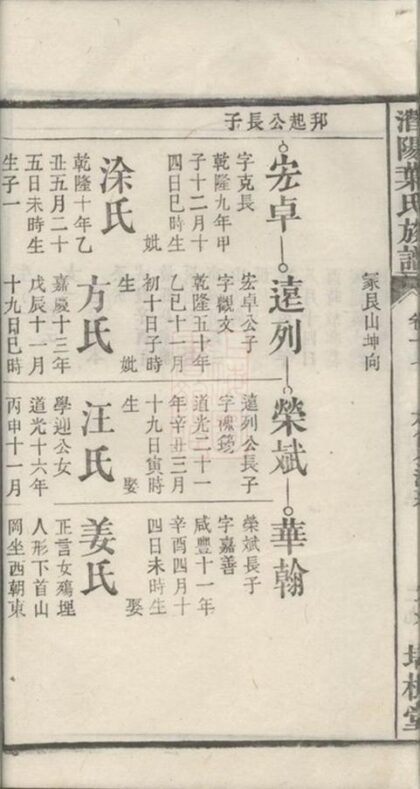 陽葉氏族譜
冢艮山坤向
邦起公長子
宏卓
字克長
乾隆九年甲
子十二月十
四日巳時生
妣
涂氏
乾隆十年乙
丑五月二十
五日未時生
生子一
遠列
宏卓公子
字觀文
乾隆五十年
乙巳十一月
初十日子時
生 妣
方氏
嘉慶十三年
戊辰十一月
十九日巳時
榮斌
遠列公長子
字槐筠
道光二十一
年辛丑三月
十九日寅時
生 娶
汪氏
學迎公女
道光十六年
丙申十一月
華翰
榮斌長子
字嘉善
咸豐十一年
辛酉四月十
四日未時生
娶
姜氏
正言女殤埋
人形下首山
岡坐西朝東